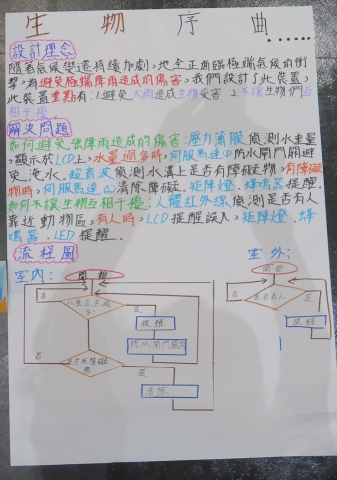 生物序曲......
設計理念
隨著氣候變遷持續加劇,地球正面臨極端氣候的衝
擊,為避免極端降雨造成的傷害,我們設計了此裝置,
此裝置重點有:1.避免大雨造成生物受害 2.不讓生物們互
相干擾。
解決問題
如何避免強降雨造成的傷害:壓力薄膜偵測水重量
,顯示於LCD上,水量過多時,伺服馬達①防水閘門關避
免淹水.超音波偵測水溝上是否有障礙物,有障礙
物時,伺服馬達②清除障礙.矩陣燈.蜂鳴器提醒.
如何不讓生物互相干擾:人體紅外線偵測是否有人
靠近動物區,有人時,LCD提醒誤入,矩陣燈.蜂
鳴器.LED提醒.
流程圖
室內:
開始
否
是
提醒
防水閘門
否
是否有障礙物
是
清除
室外:
開始
否
是否有人
是
提醒